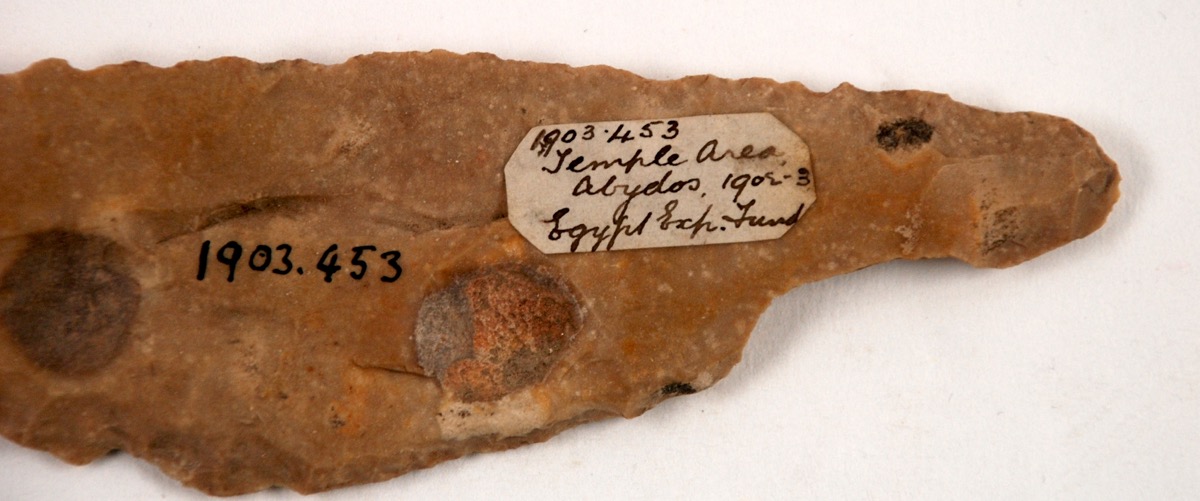 1903.453
Temple Area,
Abydos, 1902-3
Egypt Exp. Fund
1903.453